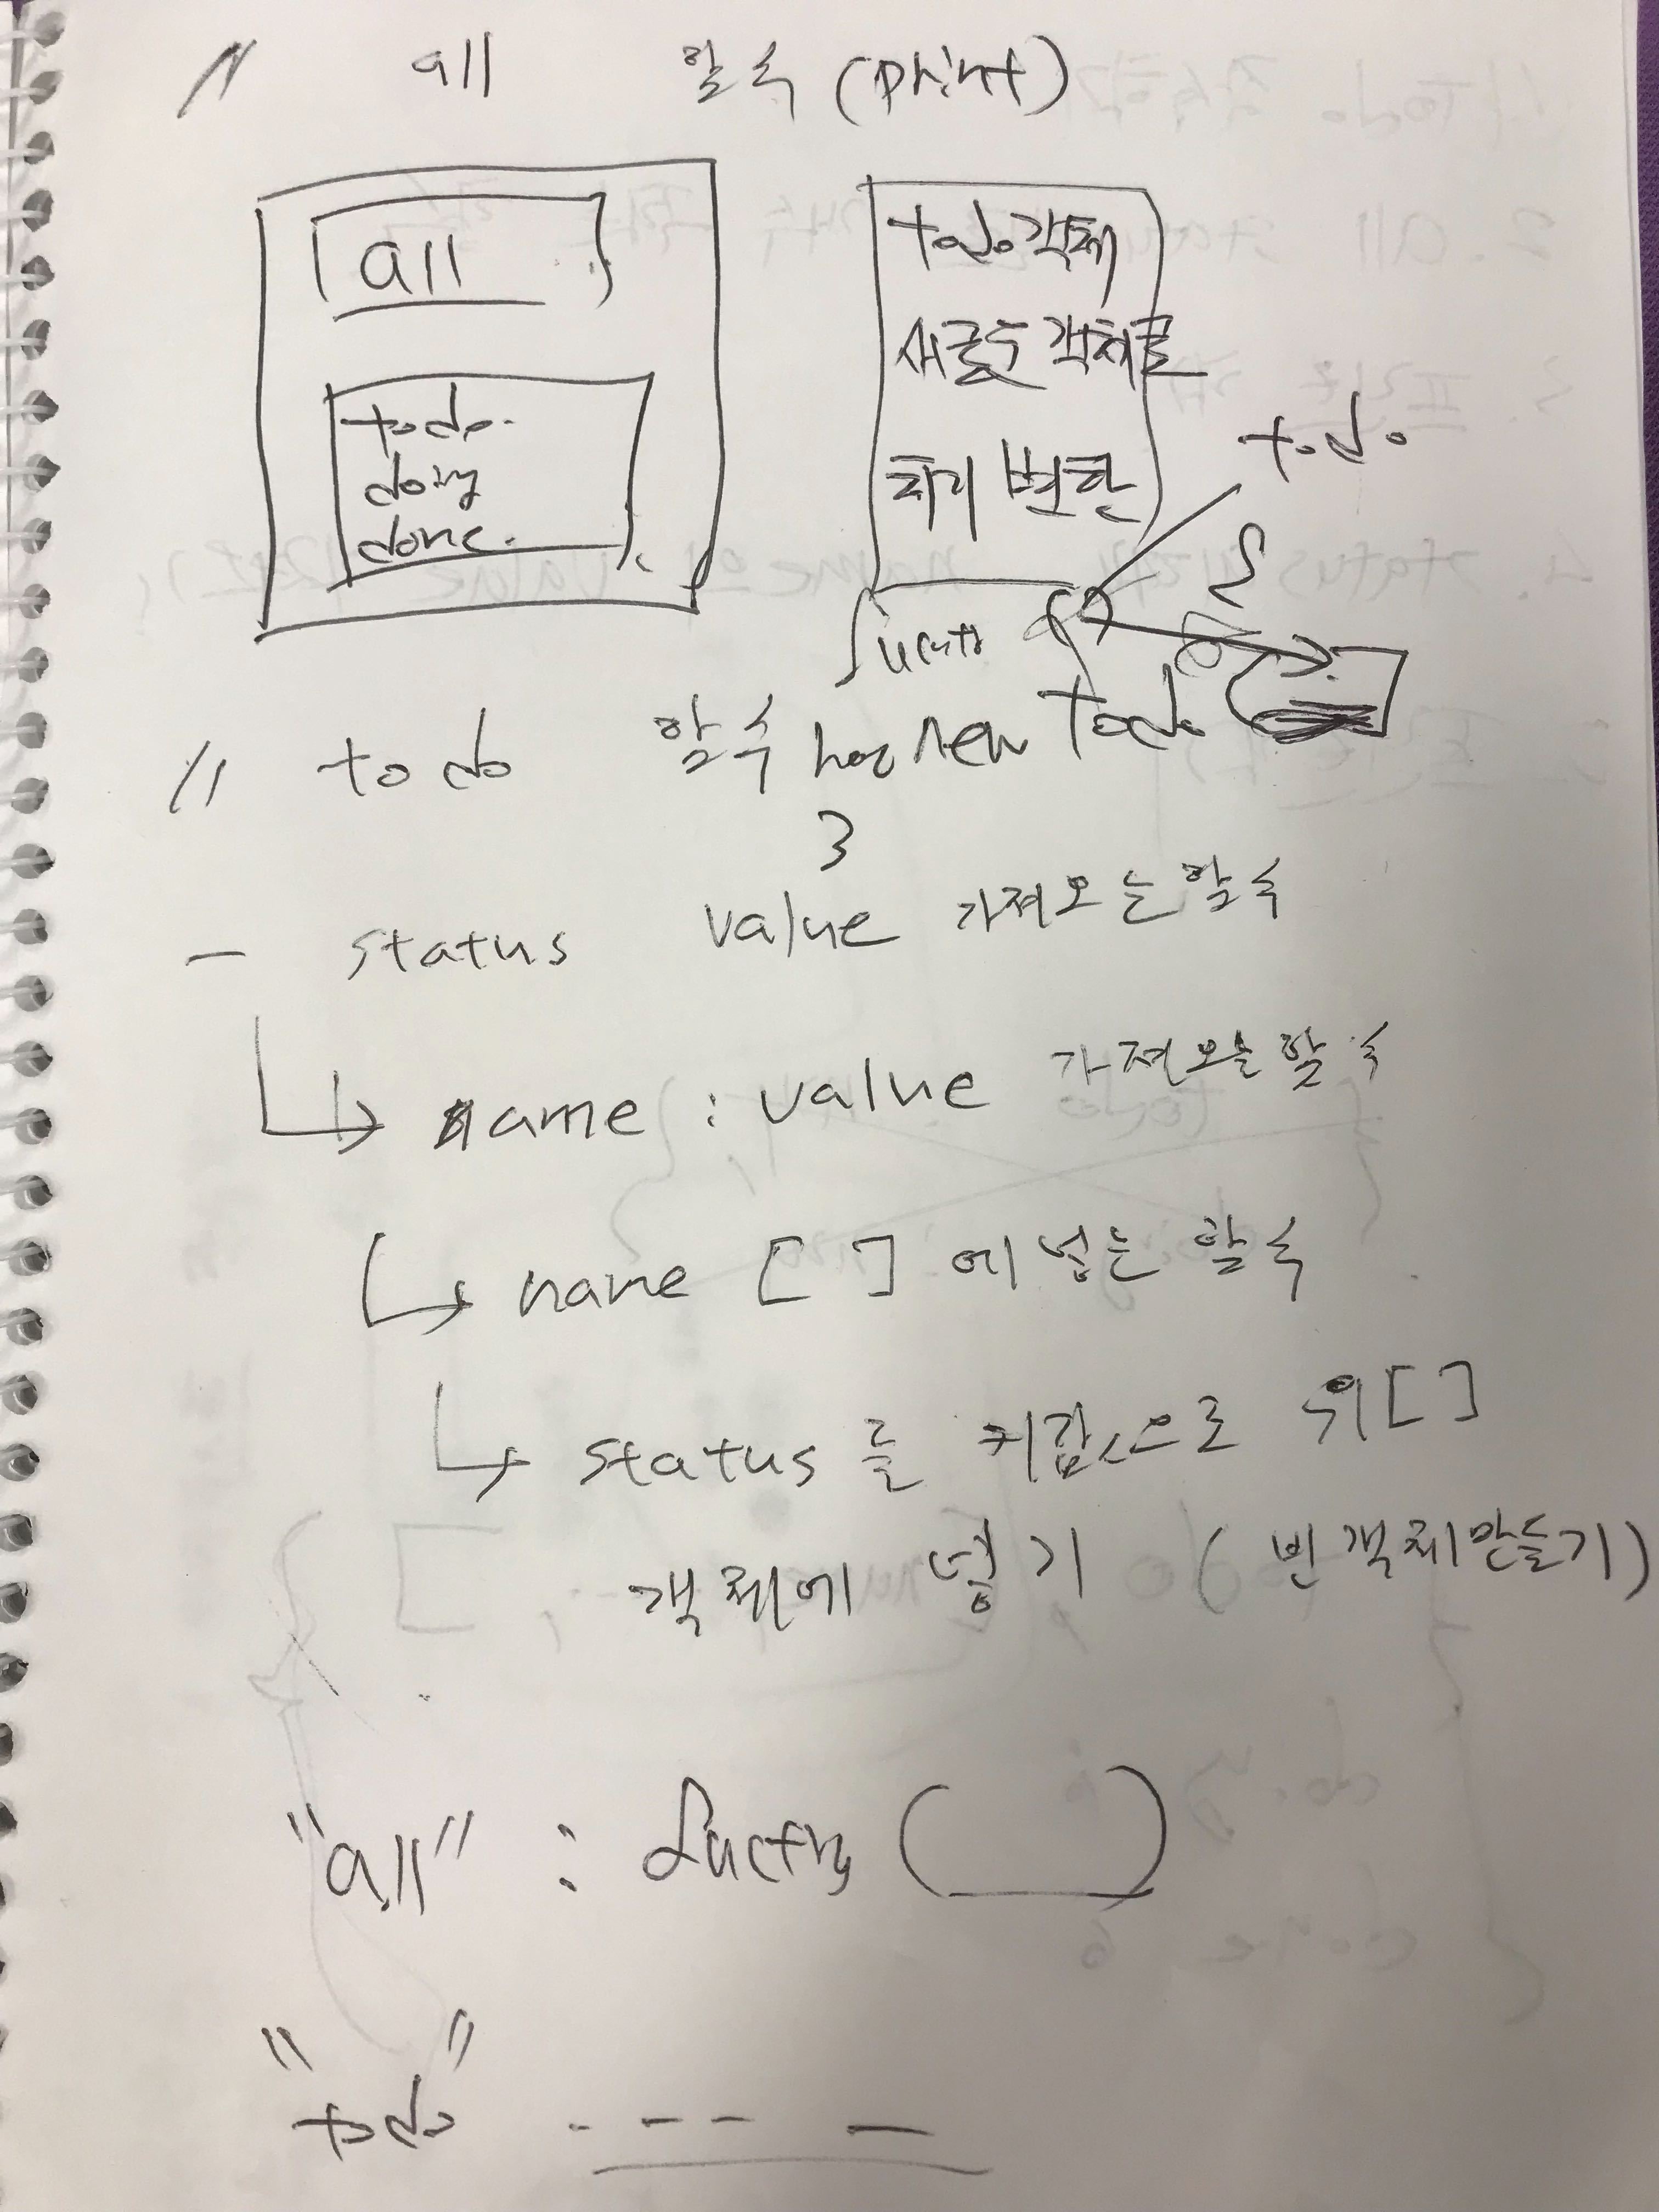 // all 함수 (print)
all
todo.
doing
done.
todo객체
새로운 객체로
처리 변환
todo
// todo 함수 new Todo
}
- status value 가져오는 함수
name : value 가져오는 함수
name [ ] 에 넣는 함수
status 를 키값으로 위 [ ]
객체에 넣기 ( 빈객체만들기 )
"all" : ( )
"todo" - - - —